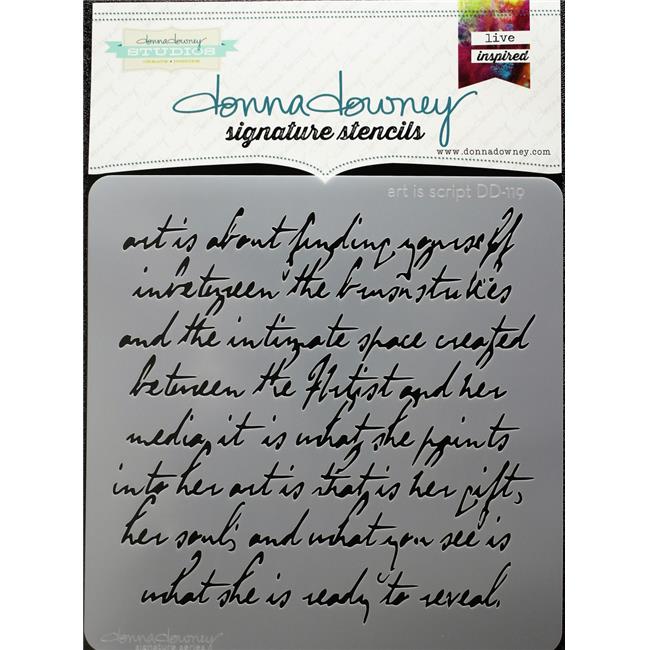 donna downey
STUDIOS
CREATE • INSPIRE
live
inspired
donna downey
signature stencils
www.donnadowney.com
art is script DD-119
art is about finding yourself
inbetween the brushstrokes
and the intimate space created
between the Artist and her
media, it is what she paints
into her art is that is her gift,
her soul, and what you see is
what she is ready to reveal.
donna downey
signature series